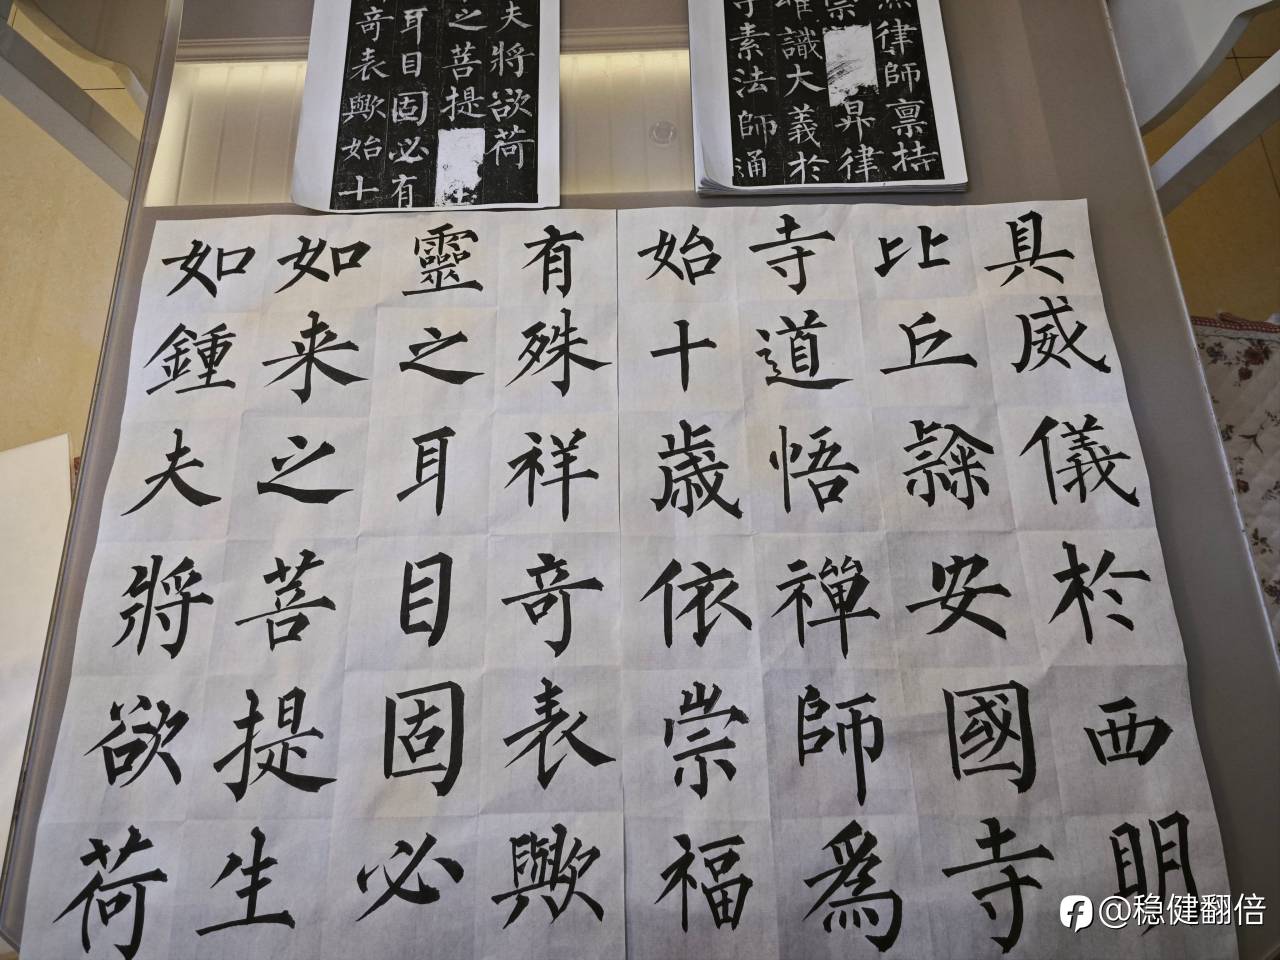 夫將欲荷
之菩提
耳目固必有
奇表歟始十
律師禀持
崇昇律
唯識大義於
寺素法師通
如鍾夫將欲荷
如来之菩提生
靈之耳目固必
有殊祥奇表歟
始十歲依崇福
寺道悟禪師爲
比丘隸安國寺
具威儀於西明
@稳健翻倍